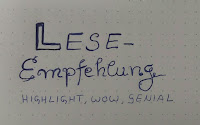 LESE-
Empfehlung
HIGHLIGHT, WOW, GENIAL